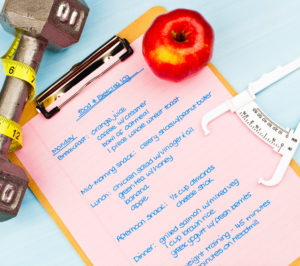 Food & Exercise Log
Monday
Breakfast: orange juice
coffee w/creamer
bowl of oatmeal
1 piece whole wheat toast
Mid-morning snack: celery sticks w/peanut butter
Lunch: chicken salad w/vinegar & oil
green tea w/honey
banana
apple
Afternoon snack: 1/2 cup almonds
cheese stick
Dinner: grilled salmon w/mixed veg
1 cup brown rice
greek yogurt w/fresh berries
weight training - 45 minutes
minutes on treadmill
10
10